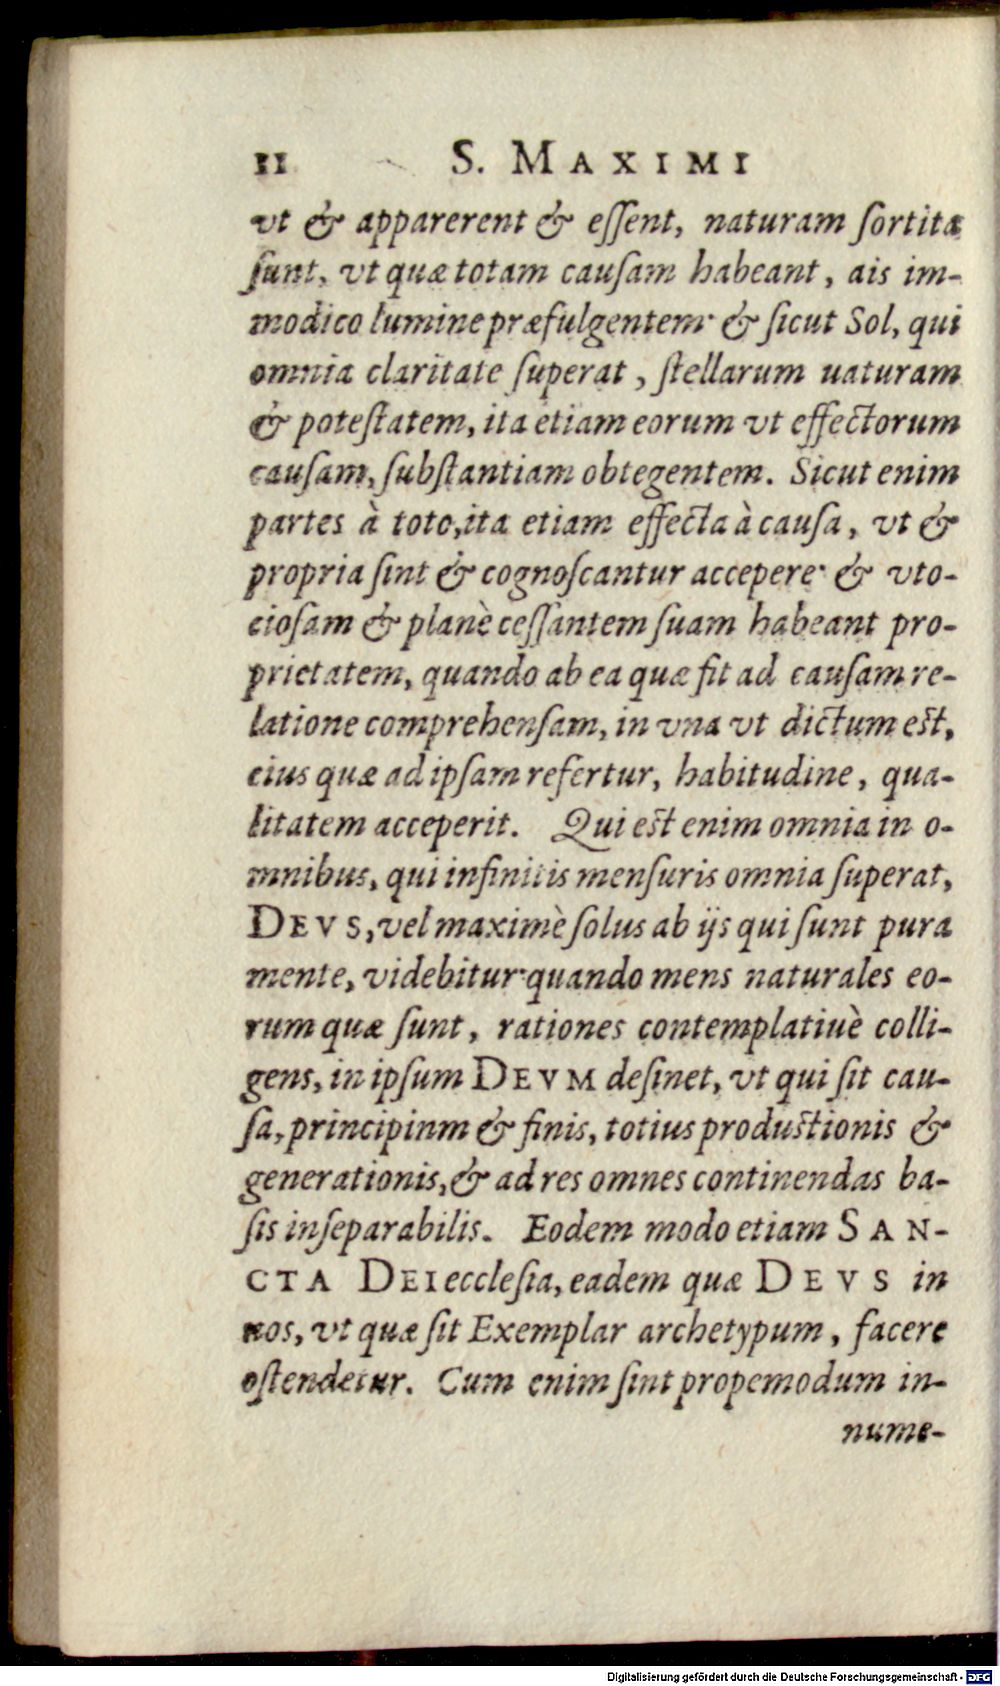 11 S. MAXIMI
vt & apparerent & eſſent, naturam ſortita
ſunt, vt quæ totam cauſam habeant, ais im-
modico lumine præfulgentem· & ſicut Sol, qui
omnia claritate ſuperat, ſtellarum uaturam
& poteſtatem, ita etiam eorum vt effectorum
cauſam, ſubſtantiam obtegentem. Sicut enim
partes à toto, ita etiam effecta à cauſa, vt &
propria ſint & cognoſcantur accepere· & vto-
cioſam & planè ceſſantem ſuam habeant pro-
prietatem, quando ab ea quæ fit ad cauſam re-
latione comprehenſam, in vna vt dictum eſt,
eius quæ ad ipſam refertur, habitudine, qua-
litatem acceperit. Qui eſt enim omnia in o-
mnibus, qui infinitis menſuris omnia ſuperat,
DEVS, vel maximè ſolus ab ijs qui ſunt pura
mente, videbitur· quando mens naturales eo-
rum quæ ſunt, rationes contemplatiuè colli-
gens, in ipſum DEVM deſinet, vt qui ſit cau-
ſa, principinm & finis, totius produſtionis &
generationis, & ad res omnes continendas ba-
ſis inſeparabilis. Eodem modo etiam SAN-
CTA DEI eccleſia, eadem quæ DEVS in
nos, vt quæ ſit Exemplar archetypum, facere
oſtendetur. Cum enim ſint propemodum in-
nume-
Digitalisierung gefördert durch die Deutsche Forschungsgemeinschaft - DFG